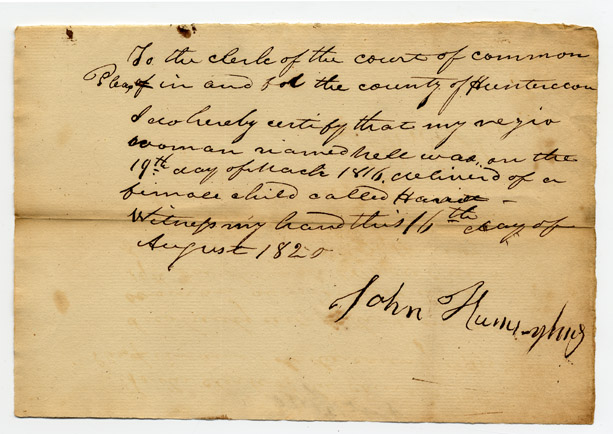 To the clerk of the court of common
Pleas in and for the county of Hunterdon
I do hereby certify that my negro
woman named nell was on the
19th day of March 1816 delivered of a
female child called
Witness my hand this 16th day of
August 1820
John Humphrey